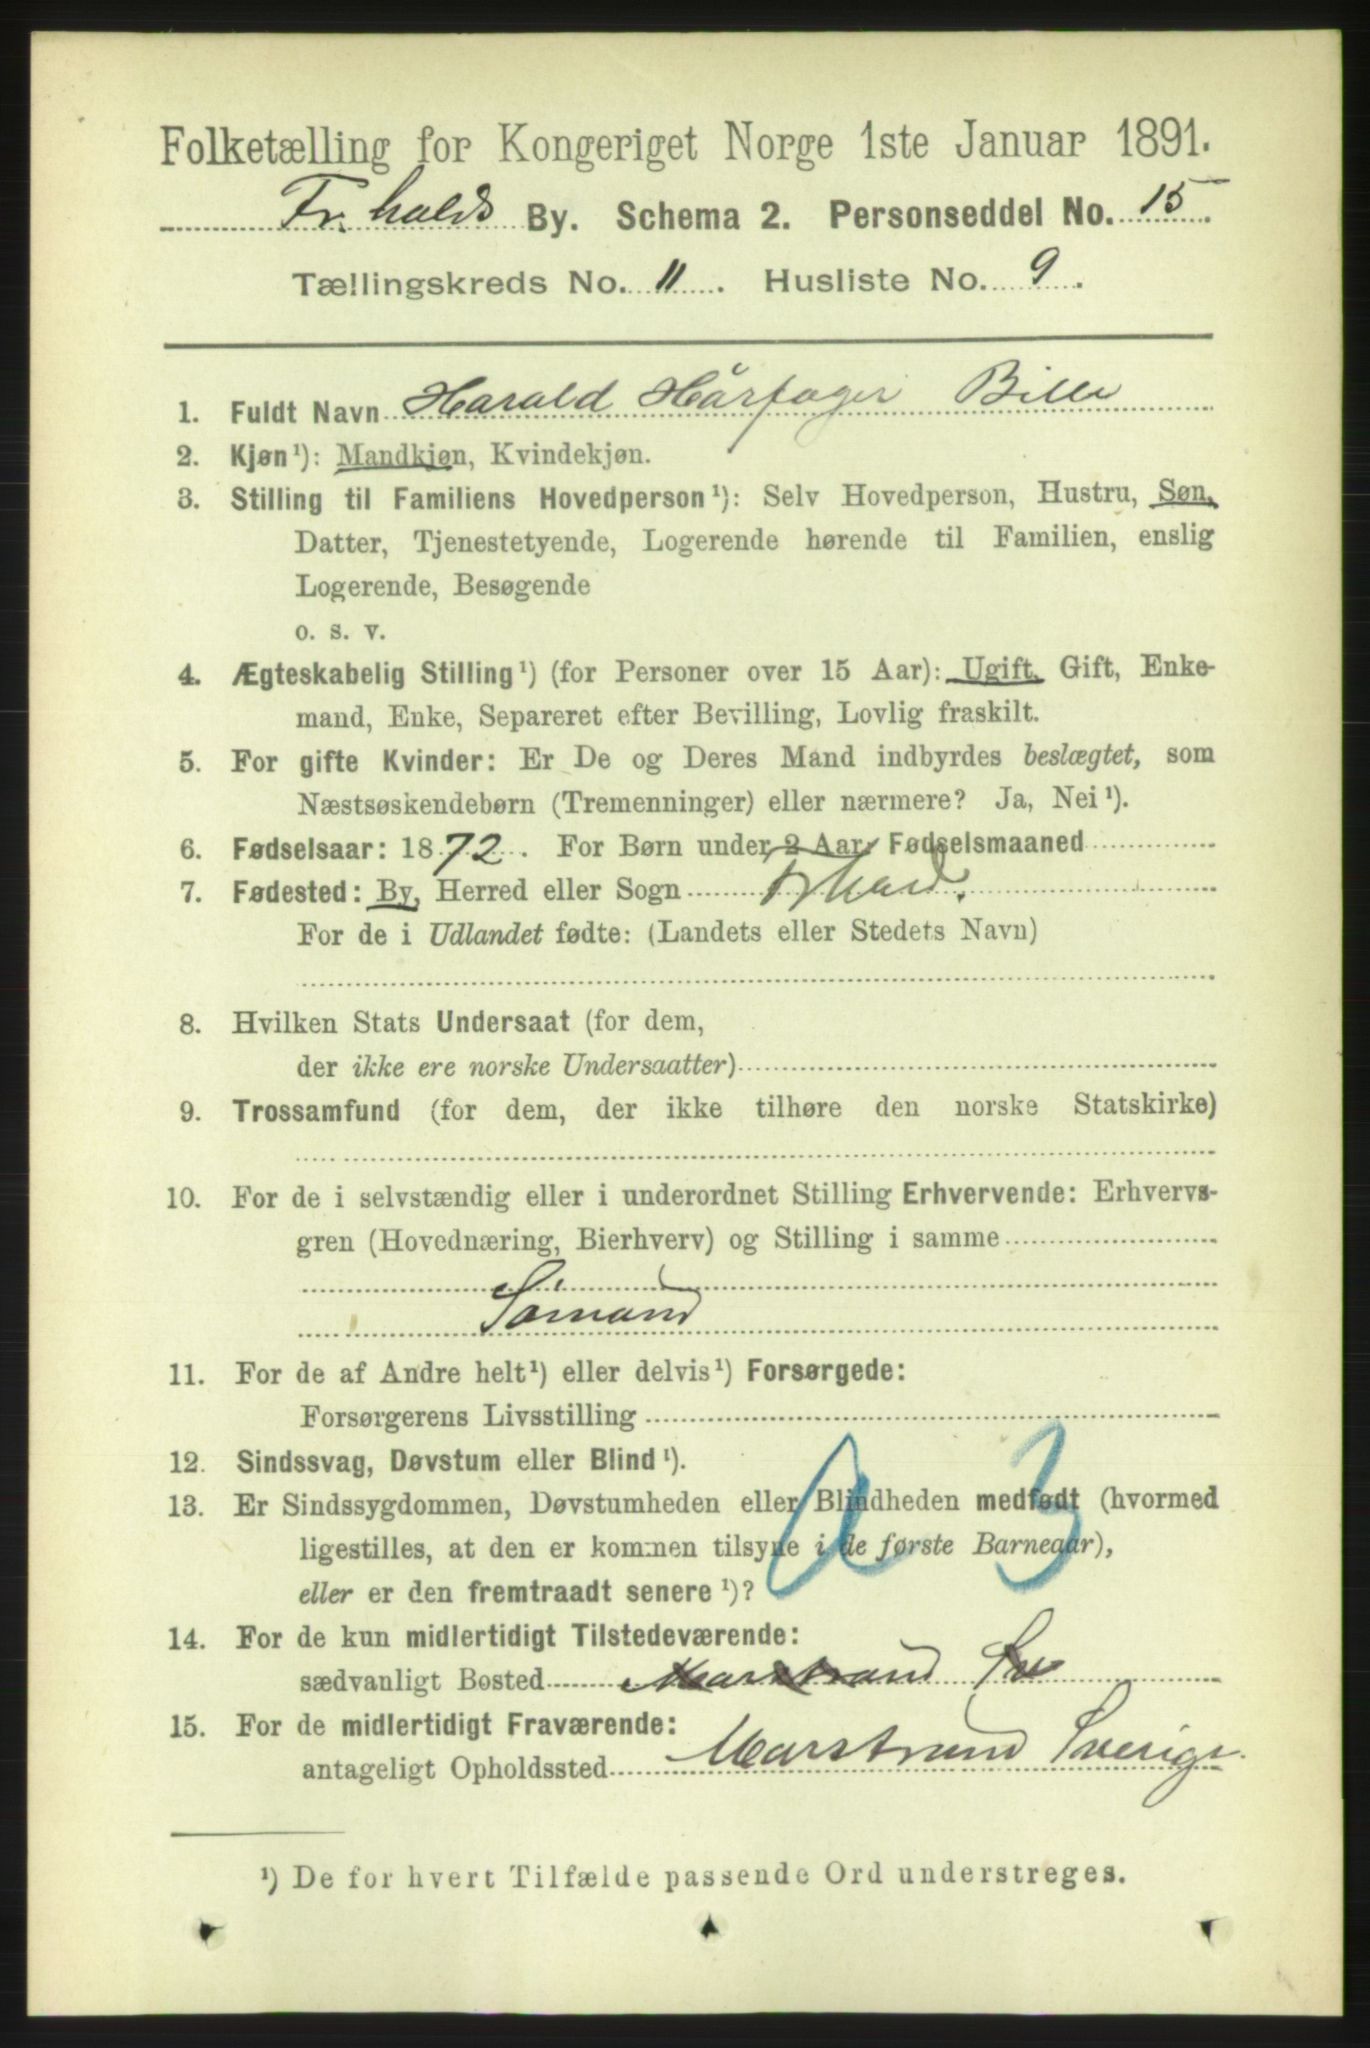 Folketælling for Kongeriget Norge 1ste Januar 1891.
Fr.halds By. Schema 2. Personseddel No. 15.
Tællingskreds No. 11. Husliste No. 9.
1. Fuldt Navn Harald Hårfager Bille
2. Kjøn ¹): Mandkjøn, Kvindekjøn.
3. Stilling til Familiens Hovedperson ¹): Selv Hovedperson, Hustru, Søn,
Datter, Tjenestetyende, Logerende hørende til Familien, enslig
Logerende, Besøgende
o. s. v.
4. Ægteskabelig Stilling ¹) (for Personer over 15 Aar): Ugift, Gift, Enke-
mand, Enke, Separeret efter Bevilling, Lovlig fraskilt.
5. For gifte Kvinder: Er De og Deres Mand indbyrdes beslægtet, som
Næstsøskendebørn (Tremenninger) eller nærmere? Ja, Nei ¹).
6. Fødselsaar: 1872. For Børn under 2 Aar, Fødselsmaaned
7. Fødested: By, Herred eller Sogn Frhald.
For de i Udlandet fødte: (Landets eller Stedets Navn)
8. Hvilken Stats Undersaat (for dem,
der ikke ere norske Undersaatter)
9. Trossamfund (for dem, der ikke tilhøre den norske Statskirke)
10. For de i selvstændig eller i underordnet Stilling Erhvervende: Erhvervs-
gren (Hovednæring, Bierhverv) og Stilling i samme
Sömand
11. For de af Andre helt ¹) eller delvis ¹) Forsørgede:
Forsørgerens Livsstilling
12. Sindssvag, Døvstum eller Blind ¹).
13. Er Sindssygdommen, Døvstumheden eller Blindheden medfødt (hvormed
ligestilles, at den er kommen tilsyne i de første Barneaar),
eller er den fremtraadt senere ¹)?
a 3
14. For de kun midlertidigt Tilstedeværende:
sædvanligt Bosted Marstrand Sve
15. For de midlertidigt Fraværende:
antageligt Opholdssted Marstrand Sverige.
¹) De for hvert Tilfælde passende Ord understreges.